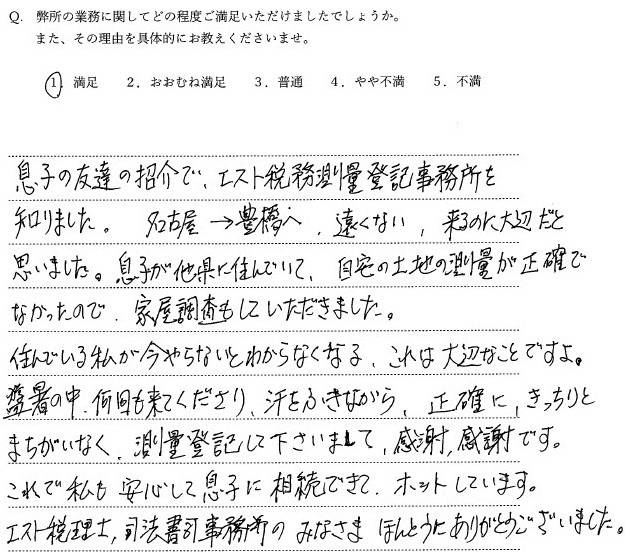 Q. 弊所の業務に関してどの程度ご満足いただけましたでしょうか。
また、その理由を具体的にお教えくださいませ。
1. 満足 2. おおむね満足 3. 普通 4. やや不満 5. 不満
息子の友達の招介で、エスト税務測量登記事務所を
知りました。 名古屋→豊橋へ、遠くない、来るのに大辺だと
思いました。息子が他県に住んでいて、自宅の土地の測量が正確で
なかったので、家屋調査もしていただきました。
住んでいる私が今やらないとわからなくなる、これは大辺なことですよ。
猛暑の中、何回も来てくださり、汗をふきながら、正確に、きっちりと
まちがいなく、測量登記して下さいまして、感謝、感謝です。
これで私も安心して息子に相続できて、ホットしています。
エスト税理士、司法書司事務所のみなさまほんとうにありがとうございました。